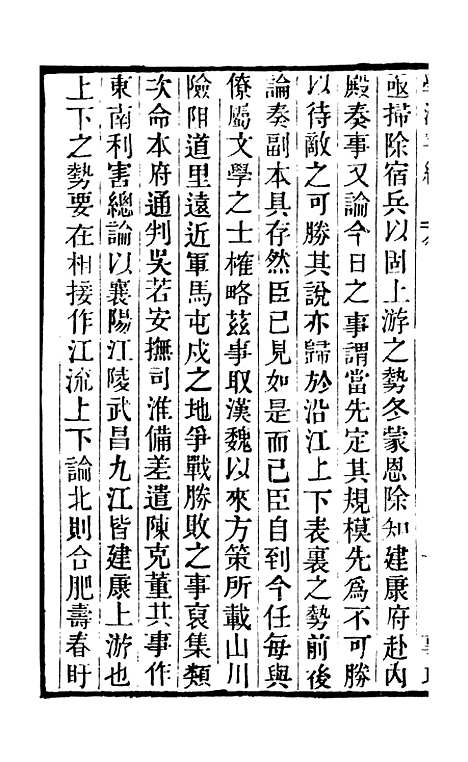 亟掃除宿兵以固上游之勢冬蒙恩除知建康府赴內
殿奏事又論今日之事謂當先定其規模先爲不可勝
以待敵之可勝其說亦歸於沿江上下表裏之勢前後
論奏副本具存然臣已見如是而已臣自到今任每與
僚屬文學之士榷略茲事取漢魏以來方策所載山川
險阻道里遠近軍馬屯戍之地爭戰勝敗之事裒集類
次命本府通判吳若安撫司准備差遣陳克董其事作
東南利害總論以襄陽江陵武昌九江皆建康上游也
上下之勢要在相接作江流上下論北則合肥壽春盱